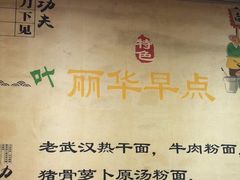 功夫
刀下见
特色
叶 丽华早点
老武汉热干面，牛肉粉面
猪骨萝卜原汤粉面